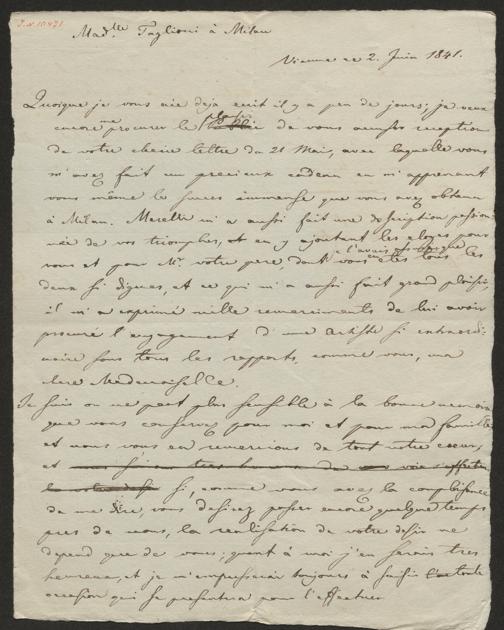 I.N. 10421
Mad.lle Taglioni à Milan
Vienne ce 2. Juin 1841.
Quoique je vous aie deja ecrit il y a peu de jours; je veux
encore me procurer le plaisir de vous accuser reception
de votre chere lettre du 21 Mai, avec laquelle vous
m'avez fait un precieux cadeau en m'apprenant
vous même le succes immense que vous avez obtenu
à Milan. Merelli m'a aussi fait une description passion
née de vos triomphes, et en y ajoutant les eloges pour
vous et pour Mr. votre pere, dont vous etes tous les
deux si dignes, et ce qui m'a aussi fait grand plaisir,
il m'a exprimé mille remerciments de lui avoir
procuré l'engagement d'une artiste si extraordi
naire sous tous les rapports, comme vous, ma
chere Mademoiselle.
Je suis on ne peut plus sensible à la bonne
que vous conservez pour moi et pour ma famille
et nous vous en remercions de tout notre coeur,
et
si, comme vous avez la complaisance
de me dire, vous desirez passer encore quelque temps
pres de nous, la realisation de votre desir ne
depend que de vous; quant à moi j'en serais tres
heureux, et je m'empresserai toujours à saisir toute
occasion qui se presentera pour l'effectuer.